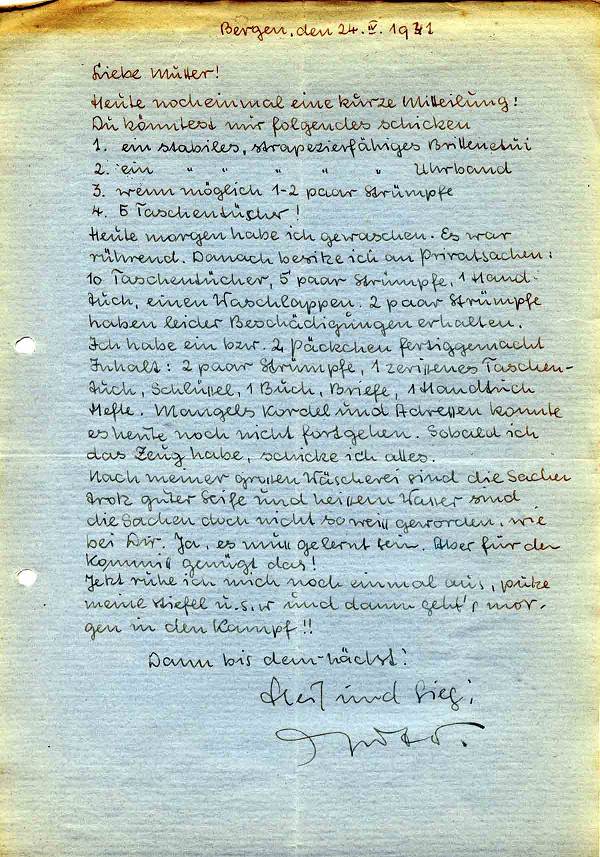 Bergen, den 24. IV. 1941
Liebe Mutter!
Heute nocheinmal eine kurze Mitteilung!
Du könntest mir folgendes schicken
1. ein stabiles, strapezierfähiges Brillenetui
2. ein " " " " " Uhrband
3. wenn möglich 1-2 paar Strümpfe
4. 5 Taschentücher!
Heute morgen habe ich gewaschen. Es war
rührend. Danach besitze ich an Privatsachen:
10 Taschentücher, 5 paar Strümpfe, 1 Hand-
tuch, einen Waschlappen. 2 paar Strümpfe
haben leider Beschädigungen erhalten.
Ich habe ein bzw. 2 Päckchen fertiggemacht
Inhalt: 2 paar Strümpfe, 1 zerissenes Taschen-
tuch, Schlüssel, 1 Buch, Briefe, 1 Handtuch
Hefte. Mangels Kordel und Adressen konnte
es heute noch nicht fortgehen. Sobald ich
das Zeug habe, schicke ich alles.
Nach meiner großen Wäscherei sind die Sachen
trotz guter Seife und heissem Wasser sind
die Sachen doch nicht so weiß geworden, wie
bei Dir. Ja, es muß gelernt sein. Aber für den
Kommiß genügt das!
Jetzt ruhe ich mich noch einmal aus, putze
meine Stiefel u.s.w und dann geht's mor-
gen in den Kampf!!
Dann bis dem-nächst!
Heil und Sieg!